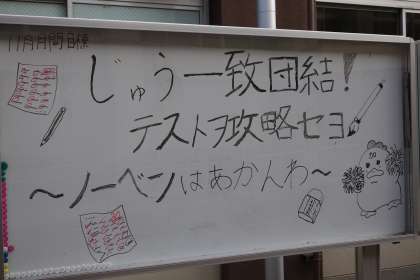 11月月間目標
じゅう一致団結!
テストヲ攻略セヨ
〜ノーベンはあかんわ〜